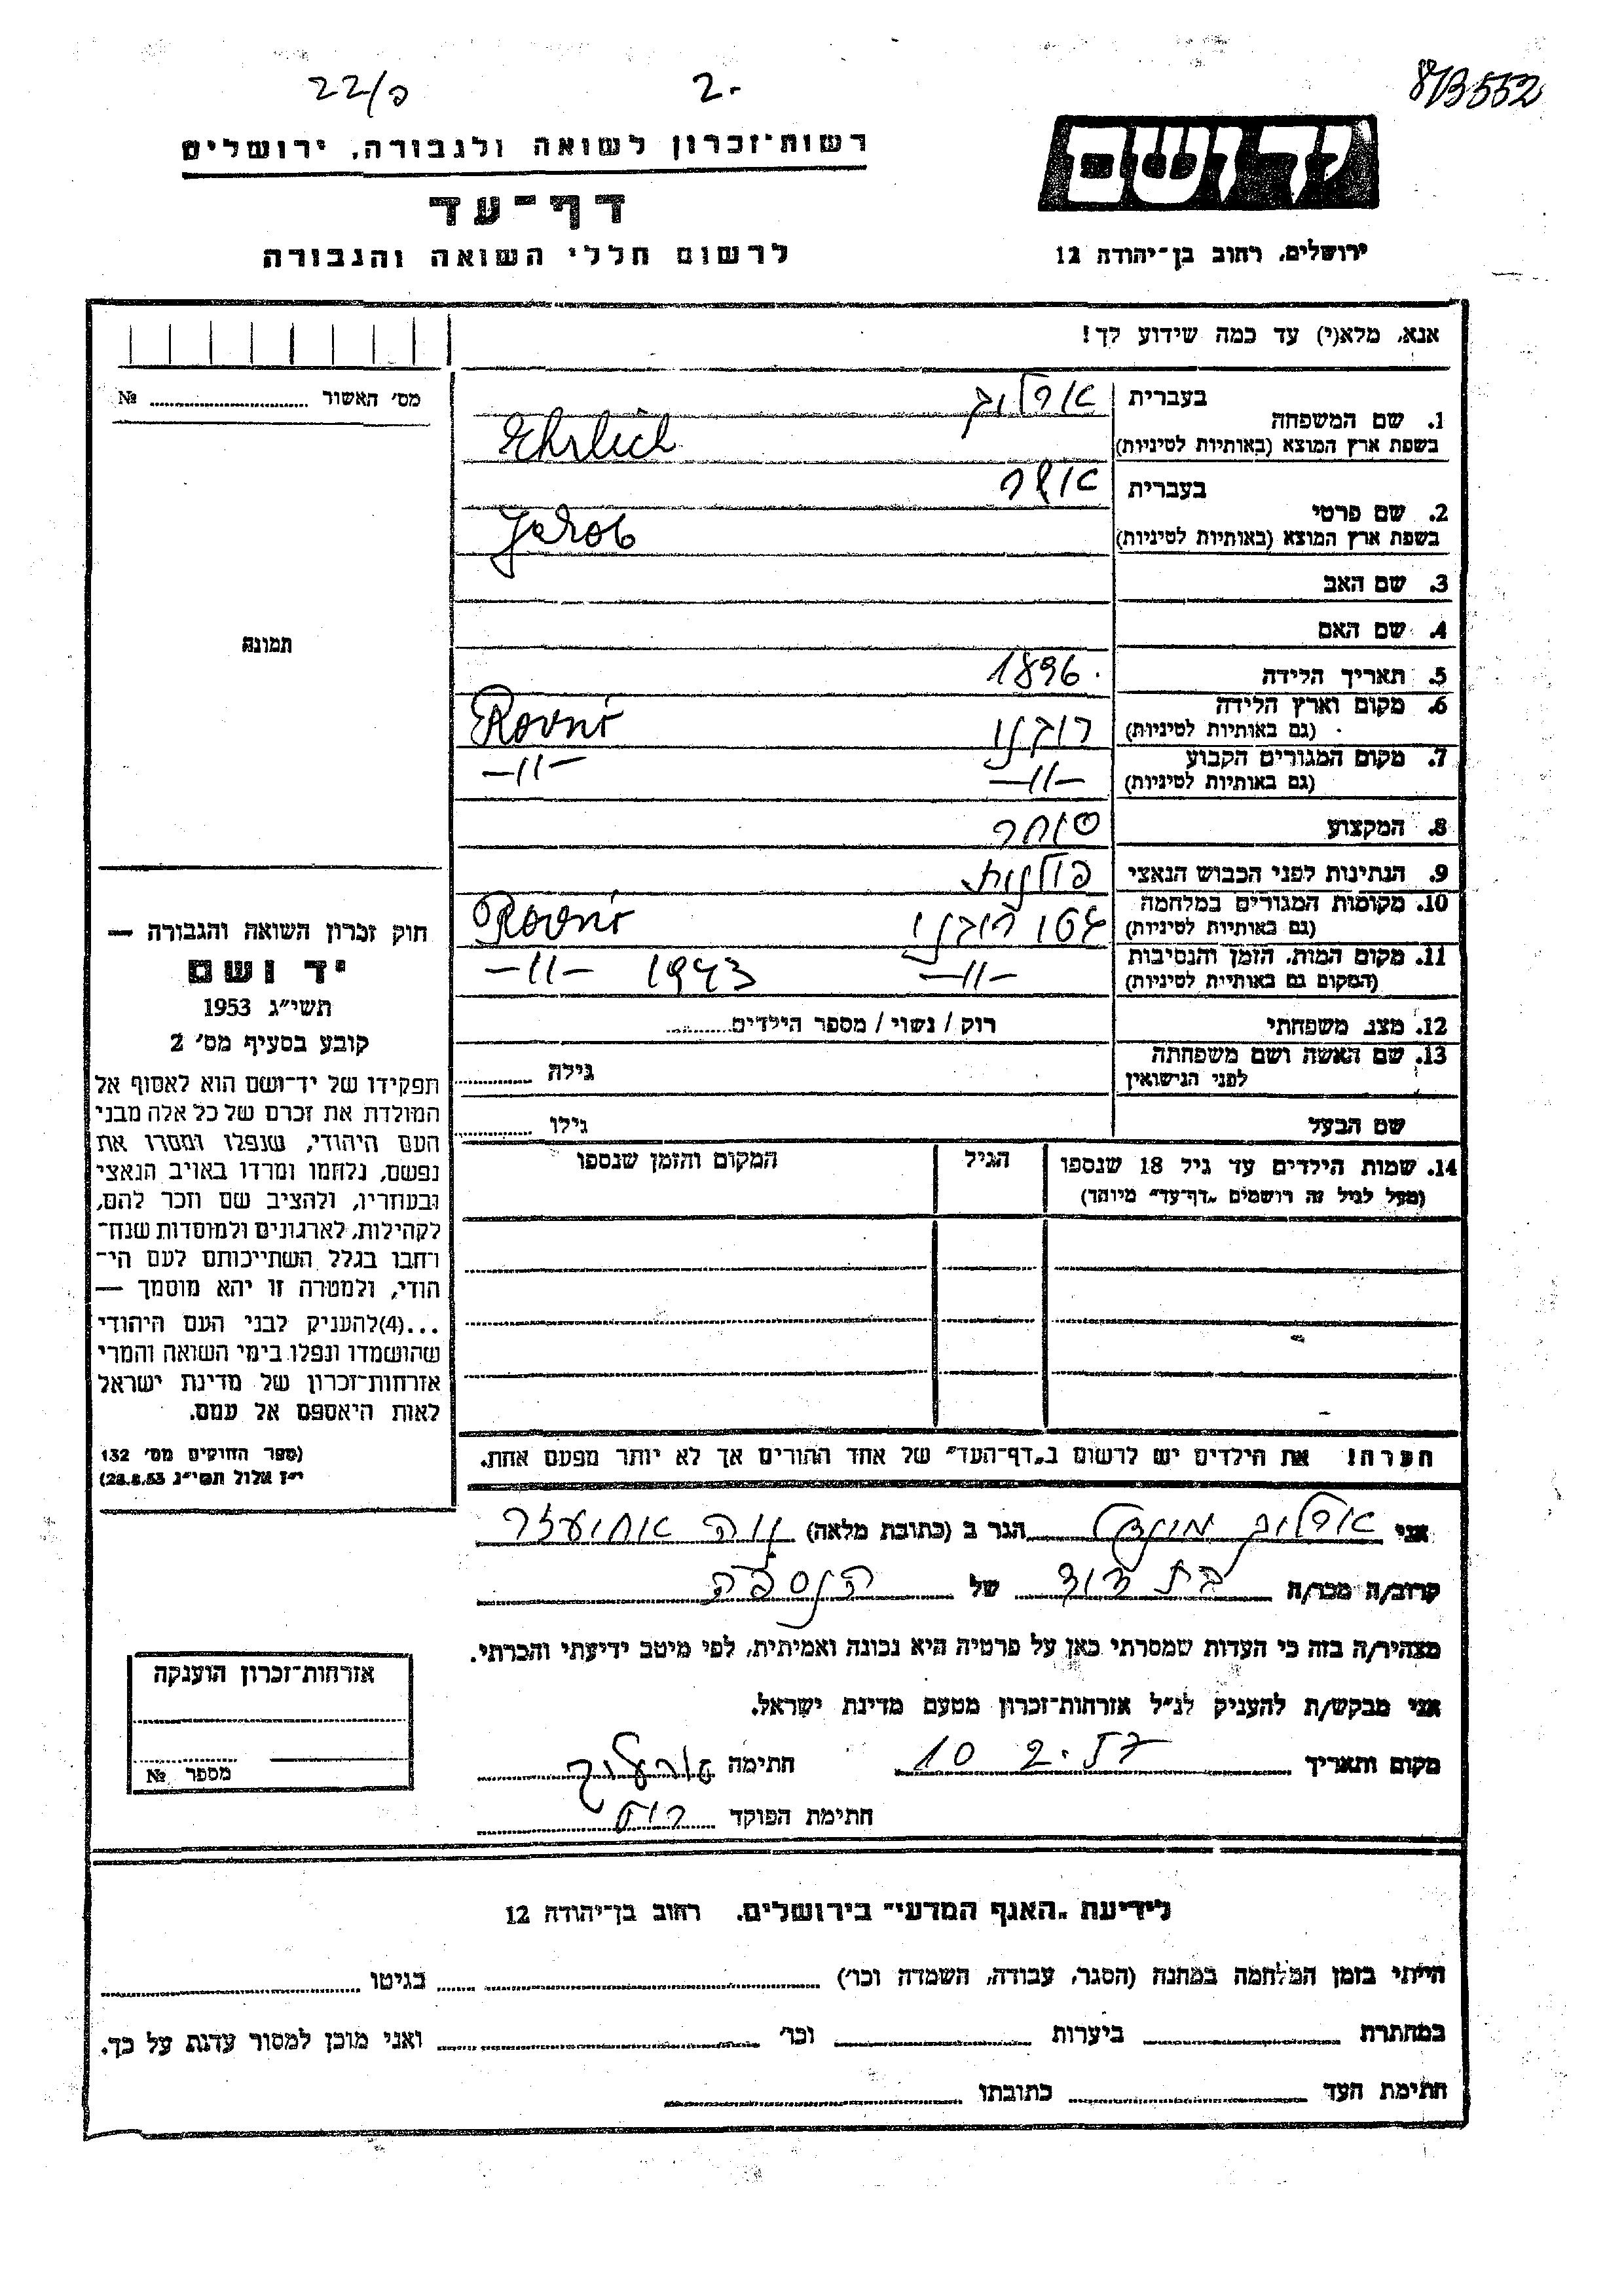 22/פ
2.
873552
רשות־זכרון לשואה ולגבורה, ירושלים
דף־עד
לרשום חללי השואה והגבורה
יד ושם
ירושלים, רחוב בן־יהודה 12
אנא, מלא(י) עד כמה שידוע לך!
מס׳ האשור № 
1. שם המשפחה
בעברית ארליך
בשפת ארץ המוצא (באותיות לטיניות) Ehrlich
2. שם פרטי
בעברית
בשפת ארץ המוצא (באותיות לטיניות)
3. שם האב
4. שם האם
תמונה
5. תאריך הלידה 1896.
6. מקום וארץ הלידה
(גם באותיות לטיניות) רובנו Rovno
7. מקום המגורים הקבוע
(גם באותיות לטיניות) —״— —״—
8. המקצוע סוחר
9. הנתינות לפני הכבוש הנאצי פולנית
10. מקומות המגורים במלחמה
(גם באותיות לטיניות) גטו רובנו Rovno
11. מקום המות, הזמן והנסיבות
(המקום גם באותיות לטיניות) —״— 1943 —״—
12. מצב משפחתי רוק / נשוי / מספר הילדים
13. שם האשה ושם משפחתה
לפני הנישואין גילה
שם הבעל גילו
14. שמות הילדים עד גיל 18 שנספו
(מעל לגיל זה רושמים „דף־עד״ מיוחד)
הגיל
המקום והזמן שנספו
חוק זכרון השואה והגבורה —
יד ושם
תשי״ג 1953
קובע בסעיף מס׳ 2
תפקידו של יד־ושם הוא לאסוף אל
המולדת את זכרם של כל אלה מבני
העם היהודי, שנפלו ומסרו את
נפשם, נלחמו ומרדו באויב הנאצי
ובעוזריו, ולהציב שם וזכר להם,
לקהילות, לארגונים ולמוסדות שנח־
רחבו בגלל השתייכותם לעם הי־
הודי, ולמטרה זו יהא מוסמך —
...(4)להעניק לבני העם היהודי
שהושמדו ונפלו בימי השואה והמרי
אזרחות־זכרון של מדינת ישראל
לאות היאספם אל עמם.
(ספר החוקים מס׳ 132
י״ז אלול תשי״ג 28.8.53)
הערה! את הילדים יש לרשום ב„דף־העד״ של אחד ההורים אך לא יותר מפעם אחת.
אני ארליך הגר ב (כתובת מלאה) נוה אחיעזר
קרוב/ה מכר/ה בת דוד של הנספה
מצהיר/ה בזה כי העדות שמסרתי כאן על פרטיה היא נכונה ואמיתית, לפי מיטב ידיעתי והכרתי.
אני מבקש/ת להעניק לנ״ל אזרחות־זכרון מטעם מדינת ישראל.
מקום ותאריך 10 2. 57 חתימה
חתימת הפוקד
אזרחות־זכרון הוענקה
מספר №
לידיעת „האגף המדעי״ בירושלים, רחוב בן־יהודה 12
הייתי בזמן המלחמה במחנה (הסגר, עבודה, השמדה וכו׳) בגיטו
במחתרת ביערות וכו׳ ואני מוכן למסור עדות על כך.
חתימת העד כתובתו